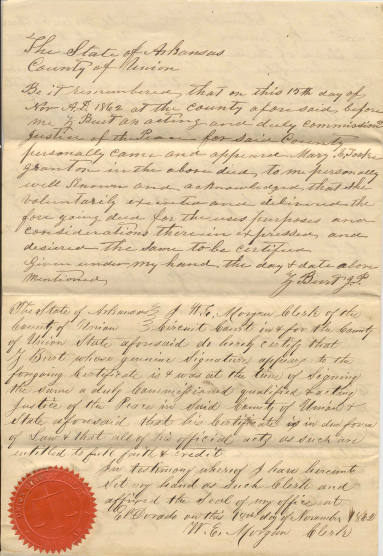 The State of Arkansas
County of Union
Be it remembered, that on this 15th day of
Nov A.D. 1862 at the county afore said, before
me Y Burt an acting and duly commissioned
Justice of the Peace for said County
personally came and appeared Mary
grantor in the above deed, to me personally
well known and acknowledged that she
voluntarily executed and delivered the
fore going deed for the uses purposes and
considerations therein expressed, and
desired the same to be certified
Given under my hand the day & date above
mentioned Y Burt J.P.
The State of Arkansas } I W. E. Morgan Clerk of the
County of Union } Circuit Court in & for the County
of Union State aforesaid do hereby certify that
Y Burt whose genuine Signature appears to the
foregoing Certificate is & was at the time of signing
the same a duly Commissioned qualified & acting
Justice of the Peace in said County of Union &
State aforesaid that his Certificate is in due form
of Law & that all of his official acts as such are
entitled to full faith & credit
In testimony whereof I have hereunto
set my hand as such Clerk and
affixed the Seal of my office at
El Dorado on this day of November 1862
W. E. Morgan Clerk